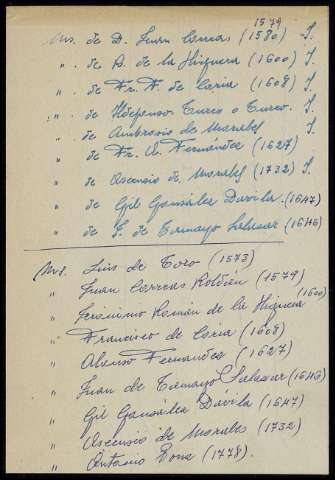 1579
Ms. de D. Juan Correas (1580) - I.
" . de A. de la Higuera (1600) I.
" . de Fr. F. de Coria (1608) I.
" . de Ildefonso Turco o Turco. I.
" de Ambrosio de Morales I.
" de Fr. A. Fernández (1627)
" de Ascensio de Morales (1732) I.
" de Gil González Dávila. (1647)
" de J. de Tamayo Salazar (1646)
Mss. Luis de Toro (1573)
" Juan Correas Roldán (1579)
" Jerónimo Román de la Higuera (1600)
" Francisco de Coria (1608)
" Alonso Fernández (1627)
" Juan de Tamayo Salazar (1646)
" Gil González Dávila (1647)
" Ascensio de Morales (1732)
" Antonio Ponz (1778).